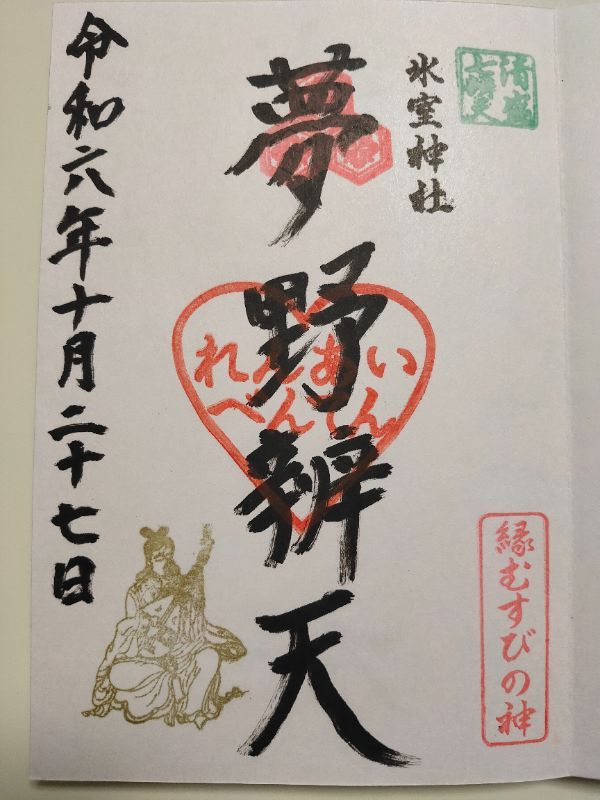 氷室神社
夢野辨天
れんあい
べんてん
縁むすびの神
令和六年十月二十七日